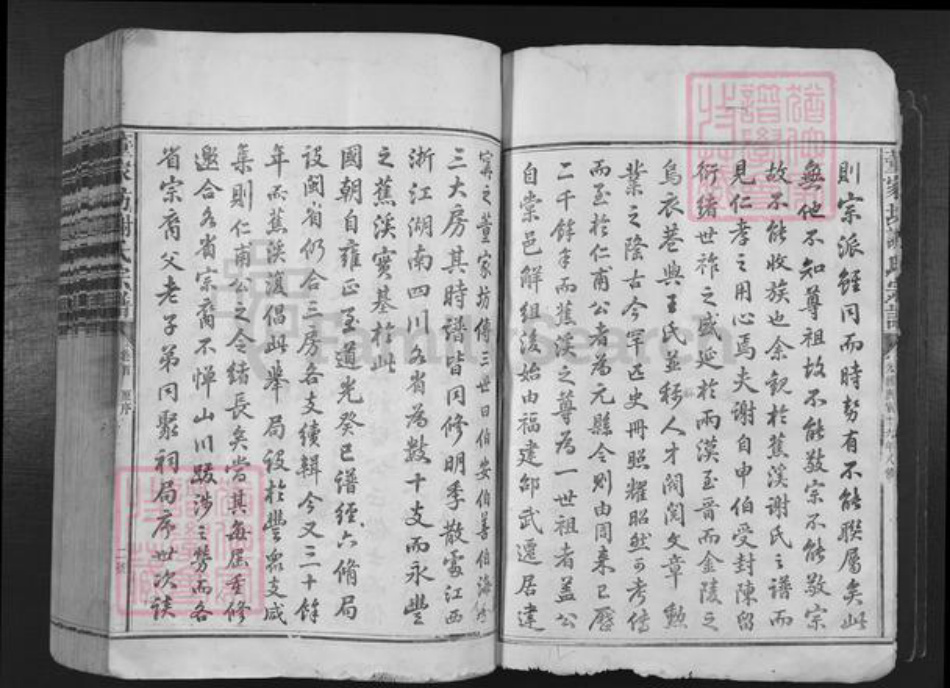 則宗派經同而時勢有不能聯屬矣此
無他不知尊祖故不能敬宗不能敬宗
故不能收族也余觀於蕉溪謝氏之譜而
見仁孝之用心焉夫謝自申伯受封陳留
衍緒世祚之盛延於兩漢至晉而金陵之
烏衣巷與王氏並稱人才閥閱文章勳
業之隆古今罕匹史冊照耀昭然可考傳
而至於仁甫公者為元縣令則由周來已歷
二千餘年而蕉溪之尊為一世祖者蓋公
自崇邑解組後始由福建邵武遷居建
寧之董家坊傳三世曰伯安伯善伯海
三大房其時譜皆同修明季散處江西
浙江湖南四川各省為數十支而永豐
之蕉溪實基於此
國朝自雍正至道光癸巳譜經六脩局
設閩省仍合三房各支續輯今又三十餘
年而蕉溪復倡此舉局設於豐眾支咸
集則仁甫公之令緒長矣當其每屆重修
邀合各省宗裔不憚山川跋涉之勞而各
省宗裔父老子弟同聚祠局序世次談
董家坊謝氏宗譜
原序
FamilySearch